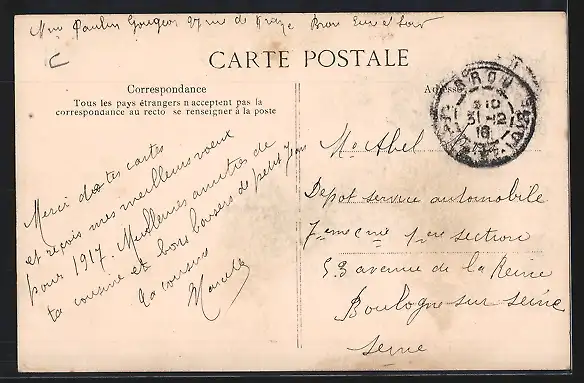 Mme Paulin Gougeon 27 rue de Brou Eure et Loir
CARTE POSTALE
Correspondance
Tous les pays étrangers n'acceptent pas la
correspondance au recto se renseigner à la poste
Adresse
BROU
31-12
16
Merci de tes cartes
et reçois mes meilleurs voeux
pour 1917. Meilleures amitiés de
ta cousine et bons baisers de petit Jean
Ta cousine
Marcelle
Mr Abel
Depot service automobile
7eme cnie 1ere section
53 avenue de la Reine
Boulogne sur Seine
Seine